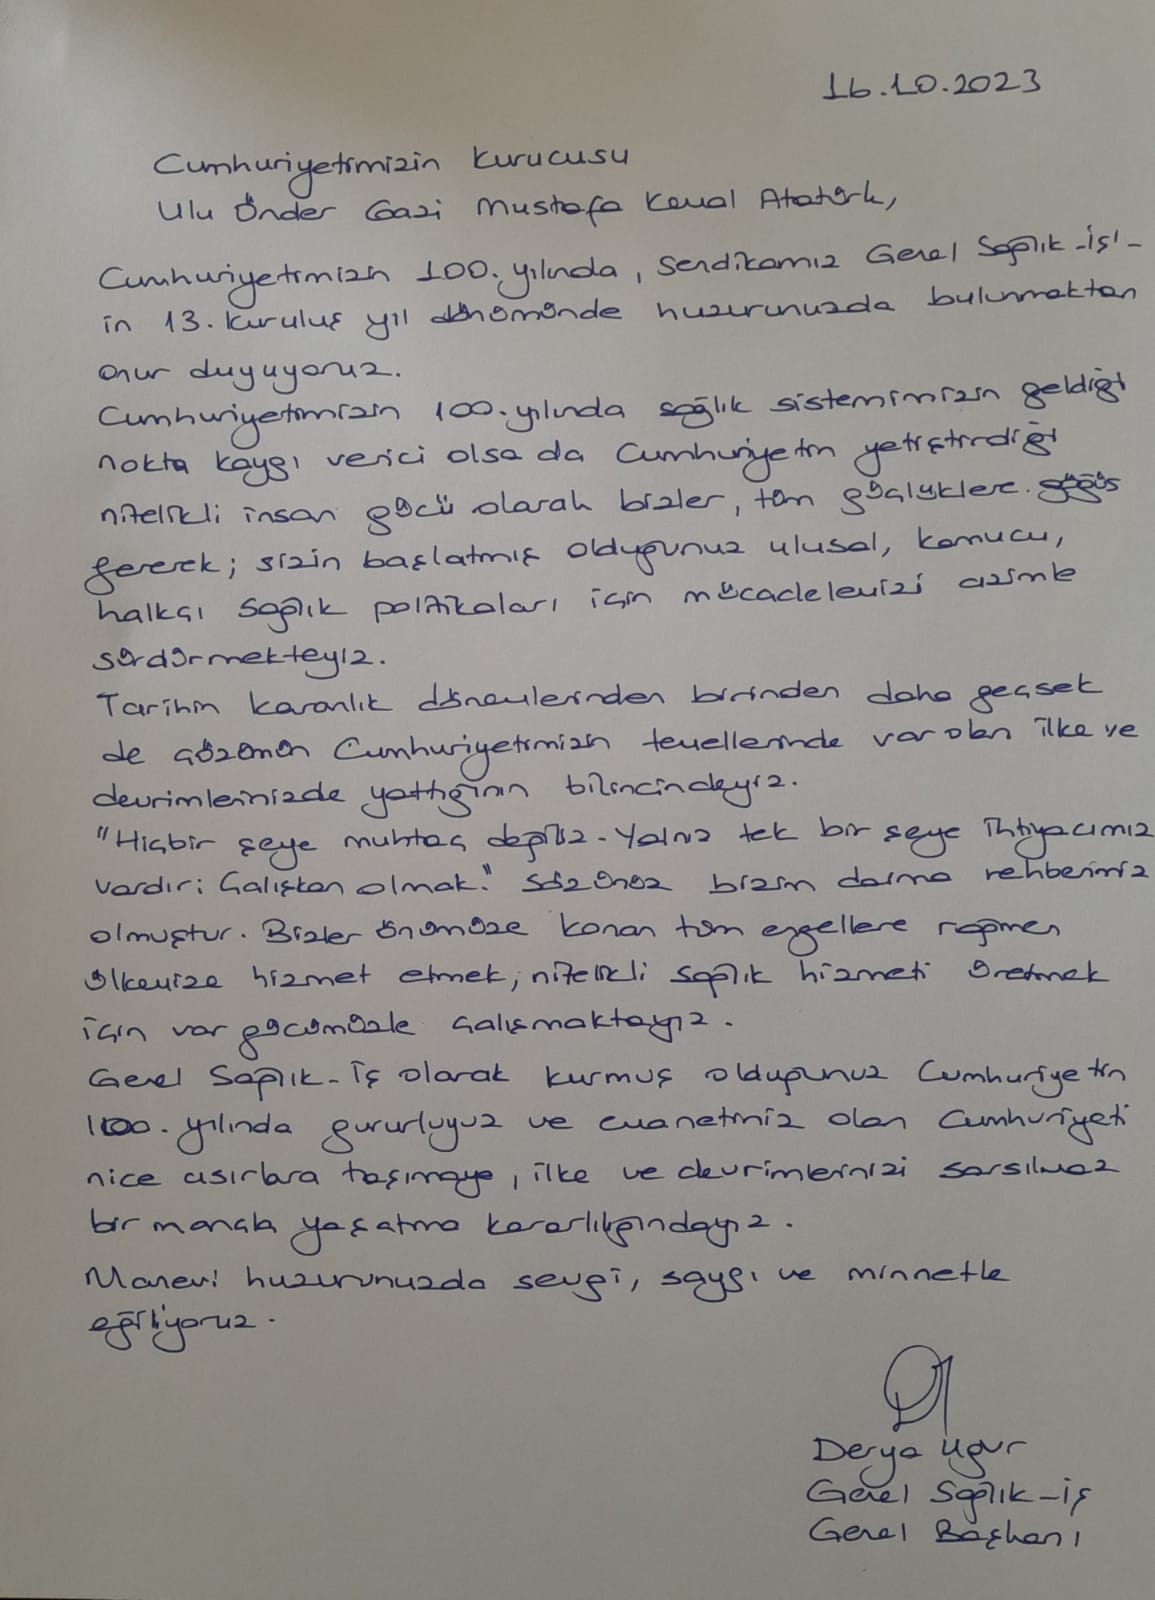 16.10.2023
Cumhuriyetimizin Kurucusu
Ulu Önder Gazi Mustafa Kemal Atatürk,
Cumhuriyetimizin 100. yılında, Sendikamız Genel Sağlık-İş'-
in 13. kuruluş yıl dönümünde huzurunuzda bulunmaktan
onur duyuyoruz.
Cumhuriyetimizin 100. yılında sağlık sistemimizin geldiği
nokta kaygı verici olsa da Cumhuriyetin yetiştirdiği
nitelikli insan gücü olarak bizler, tüm güçlüklere göğüs
gererek; sizin başlatmış olduğunuz ulusal, kamucu,
halkçı sağlık politikaları için mücadelemizi azimle
sürdürmekteyiz.
Tarihin karanlık dönemlerinden birinden daha geçsek
de çözümün Cumhuriyetimizin temellerinde var olan ilke ve
devrimlerinizde yattığının bilincindeyiz.
"Hiçbir şeye muhtaç değiliz. Yalnız tek bir şeye ihtiyacımız
vardır: Çalışkan olmak." sözünüz bizim daima rehberimiz
olmuştur. Bizler önümüze konan tüm engellere rağmen
ülkemize hizmet etmek, nitelikli sağlık hizmeti üretmek
için var gücümüzle çalışmaktayız.
Genel Sağlık-İş olarak kurmuş olduğunuz Cumhuriyetin
100. yılında gururluyuz ve emanetiniz olan Cumhuriyeti
nice asırlara taşımaya, ilke ve devrimlerinizi sarsılmaz
bir inançla yaşatma kararlılığındayız.
Manevi huzurunuzda sevgi, saygı ve minnetle
eğiliyoruz.
Derya Uğur
Genel Sağlık-İş
Genel Başkanı